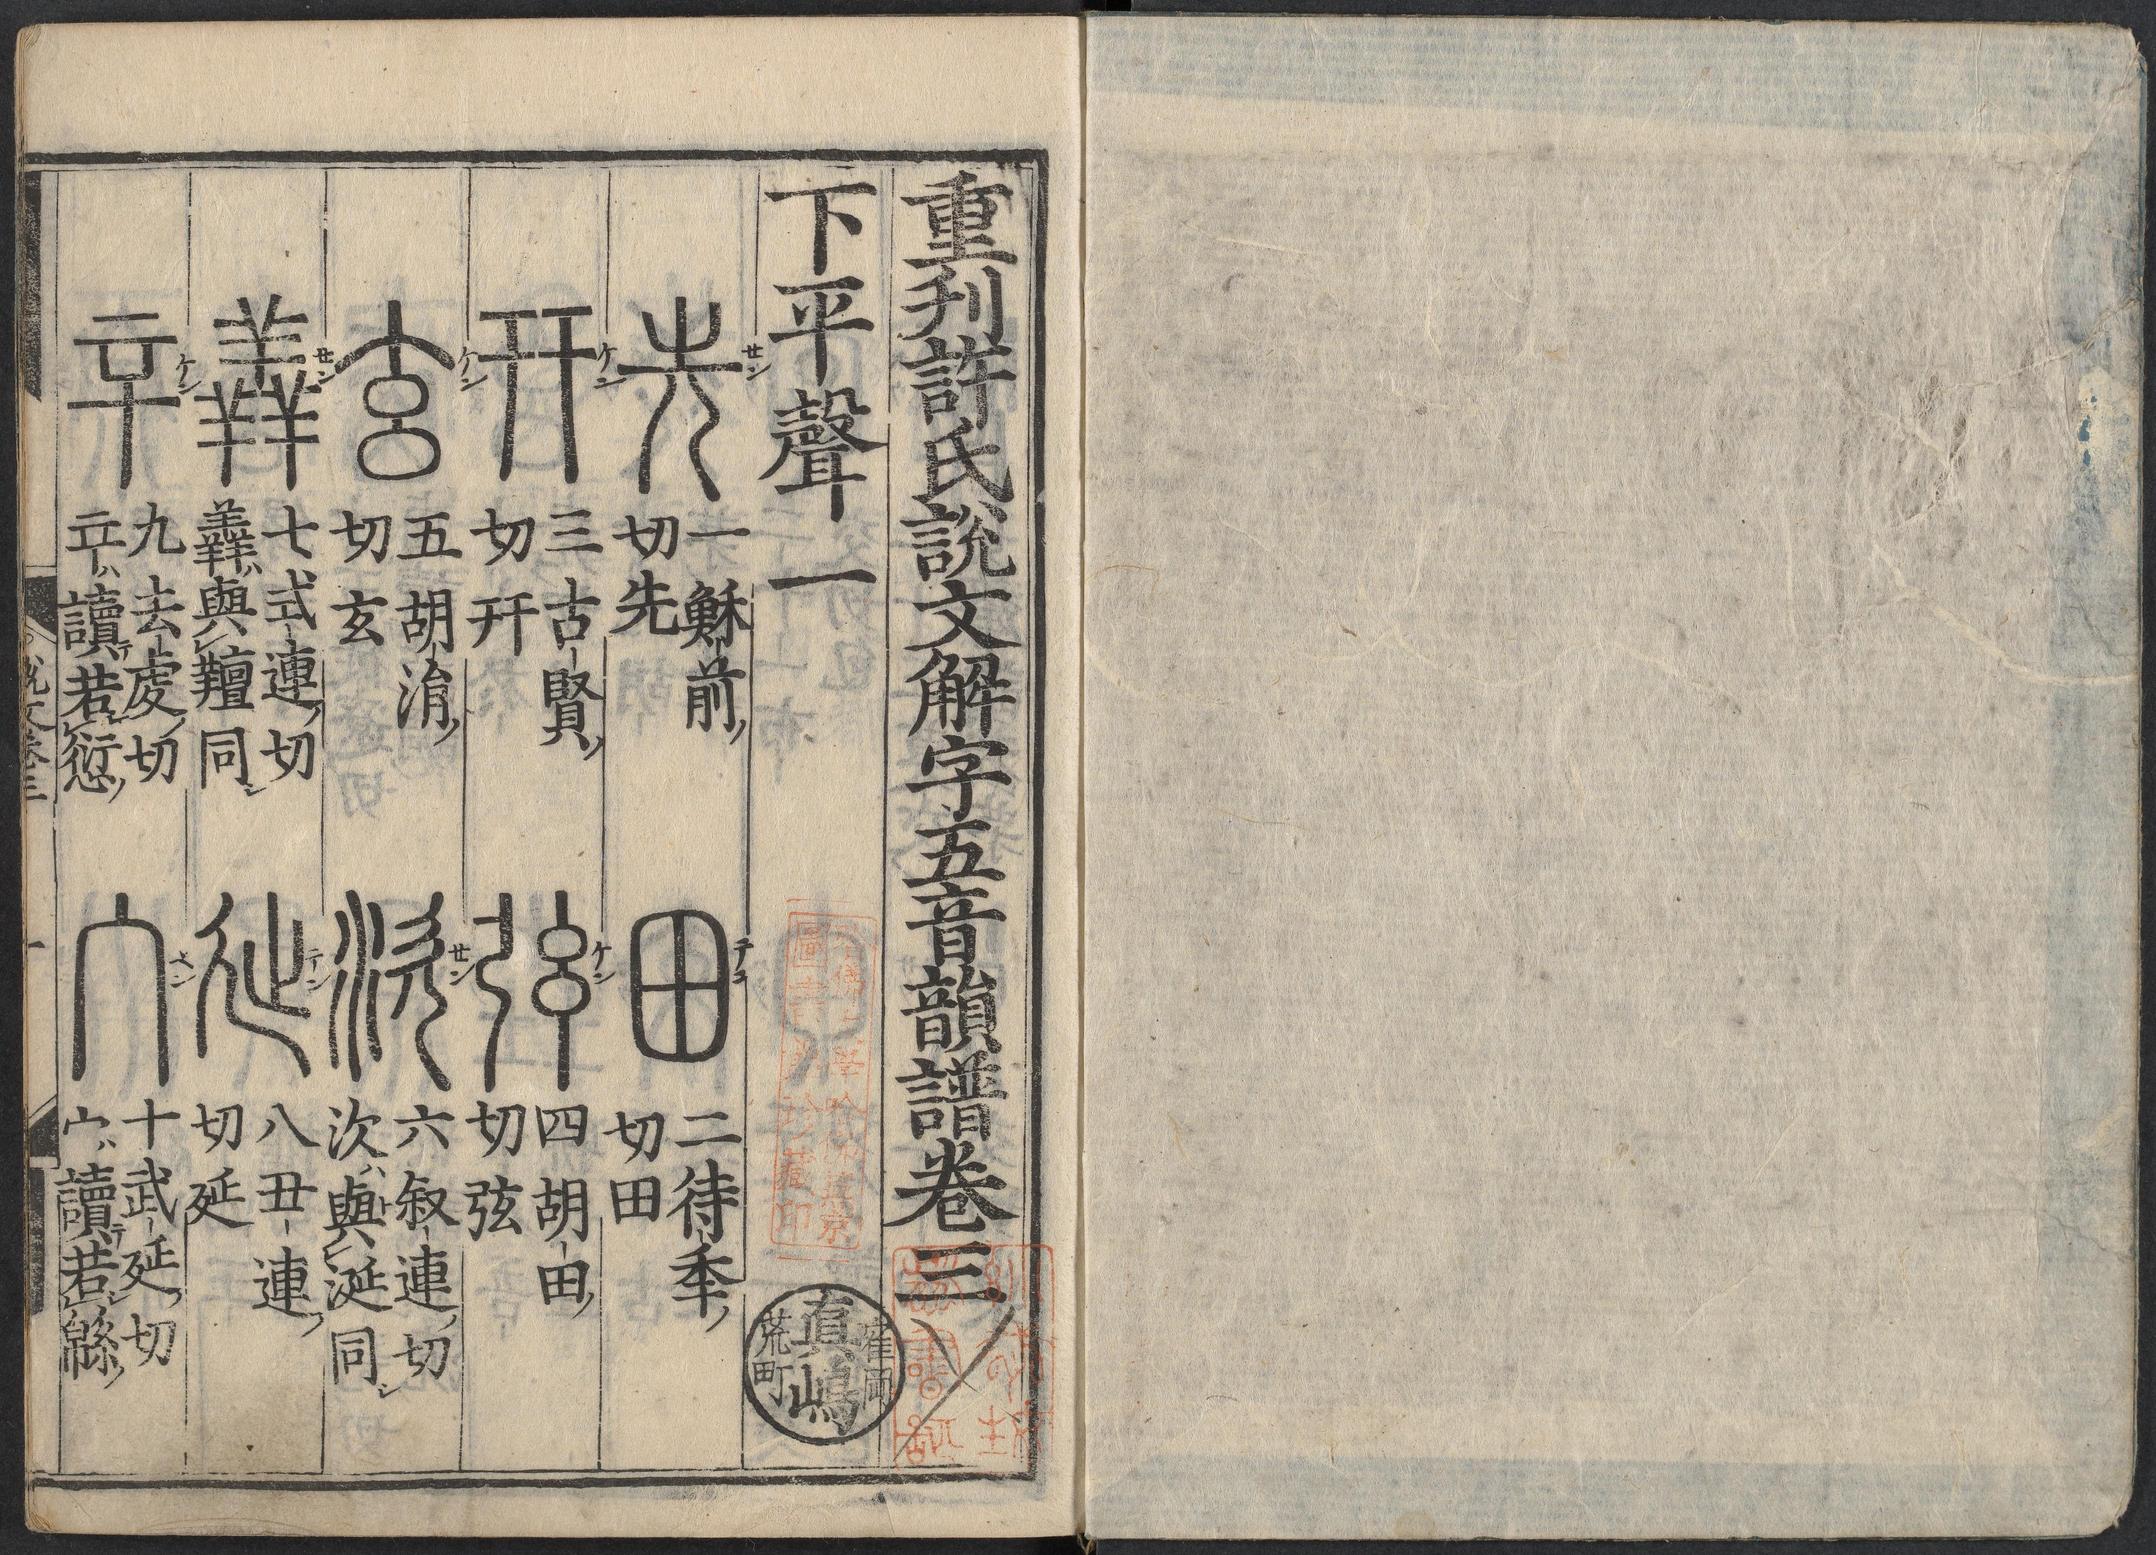 重刊許氏說文解字五音韻譜卷三
下平聲一
先 セン 一穌前切先
田 テン 二待秊切田
幵 ケン 三古賢切幵
弦 ケン 四胡田切弦
玄 ケン 五胡涓切玄
㳄 セン 六叙連切㳄與涎同
羴 セン 七式連切羴與羶同
㢟 テン 八丑連切㢟
䇂 ケン 九去虔切䇂讀若愆
宀 メン 十武延切宀讀若緜
真嶋
荒町
圖書
藏印